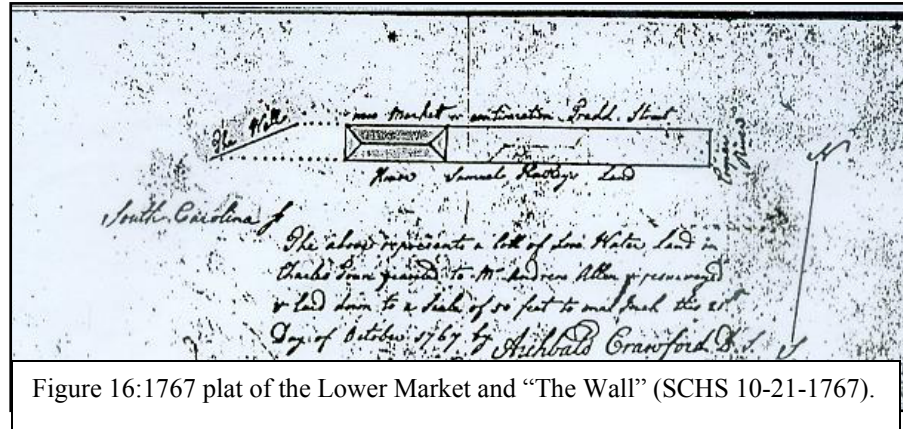 new Market or continuation Tradd Street
The Wall
Cooper River
House Samuel Prioleau Land
N
South Carolina
The above represents a lott of Low Water Land in
Charles Town granted to Mr Andrew Allen & resurveyed
& laid down to a Scale of 50 feet to one Inch this 21st
Day of October 1767 by Archbald Crawford D. S.
S
Figure 16:1767 plat of the Lower Market and “The Wall” (SCHS 10-21-1767).